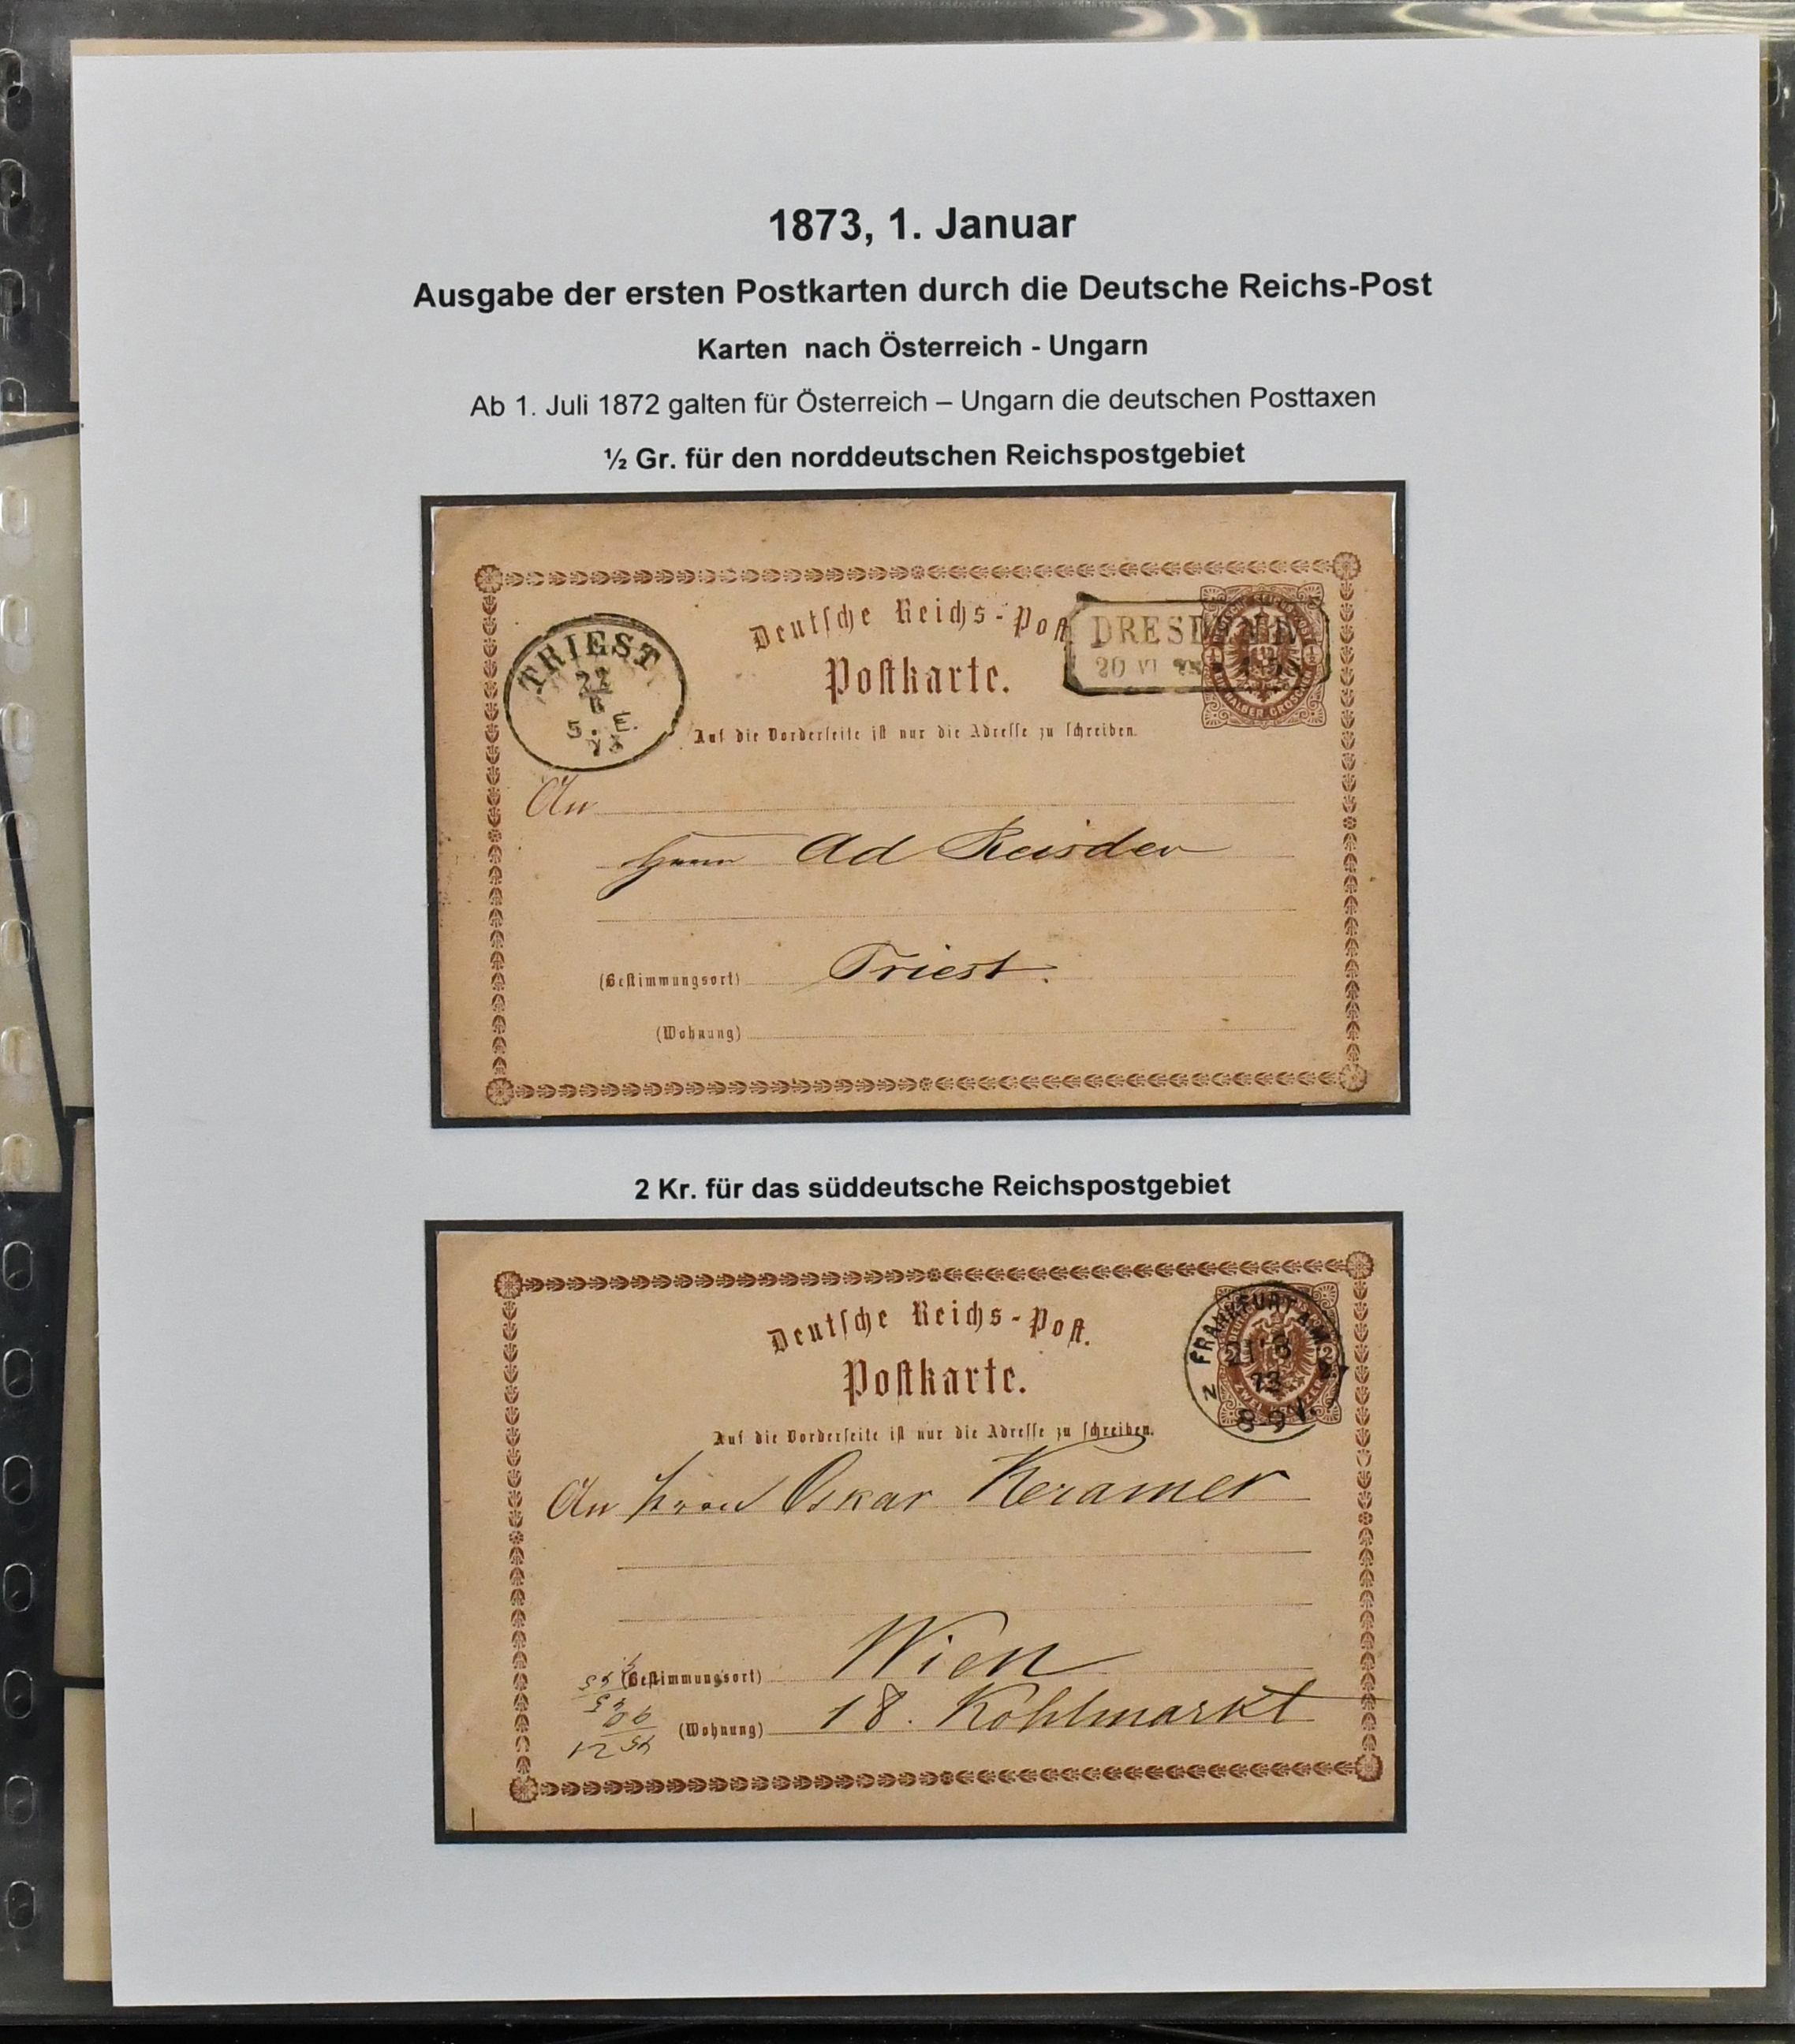 1873, 1. Januar
Ausgabe der ersten Postkarten durch die Deutsche Reichs-Post
Karten nach Österreich - Ungarn
Ab 1. Juli 1872 galten für Österreich – Ungarn die deutschen Posttaxen
½ Gr. für den norddeutschen Reichspostgebiet
Deutsche Reichs-Post
Postkarte.
Auf die Vorderseite ist nur die Adresse zu schreiben.
TRIEST
22
6
5. E.
73
DRESDEN
20 VI
HALBER GROSCHEN
An
Herrn Ad
Triest.
(Bestimmungsort)
(Wohnung)
2 Kr. für das süddeutsche Reichspostgebiet
Deutsche Reichs-Post.
Postkarte.
Auf die Vorderseite ist nur die Adresse zu schreiben.
FRANKFURT A.M.
73
8-9 V.
2
ZWEI KREUZER
An Herrn Oskar Kramer
(Bestimmungsort) Wien
(Wohnung) 18. Kohlmarkt